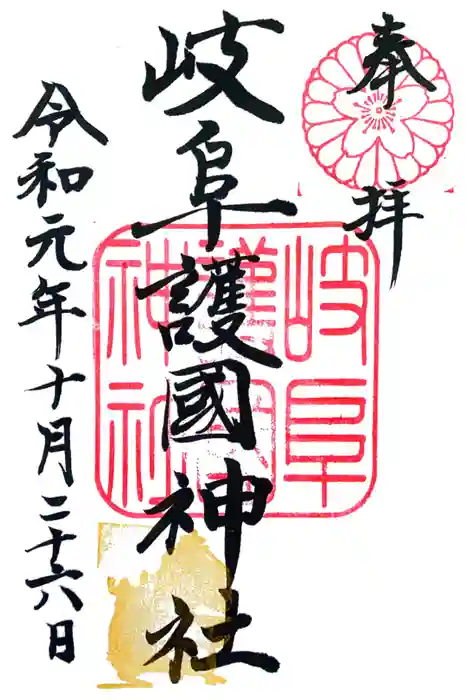 奉拝
岐阜護國神社
岐阜護國神社
令和元年十月二十六日